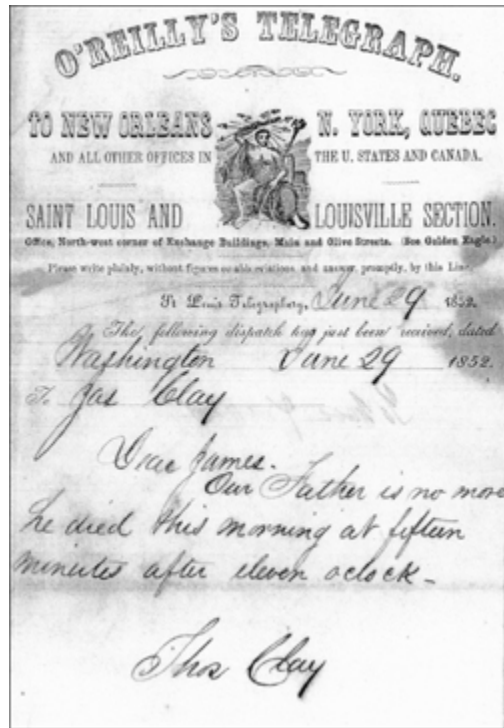 O'REILLY'S TELEGRAPH.
TO NEW ORLEANS N. YORK, QUEBEC
AND ALL OTHER OFFICES IN THE U. STATES AND CANADA.
SAINT LOUIS AND LOUISVILLE SECTION.
Office, North-west corner of Exchange Buildings, Main and Olive Streets. (See Golden Eagle.)
Please write plainly, without figures or abbreviations, and answer promptly, by this Line.
St. Louis Telegraphery, June 29 1852.
The following dispatch has just been received, dated
Washington June 29 1852.
To Jas Clay
Dear James.
Our Father is no more
he died this morning at fifteen
minutes after eleven oclock -
Thos Clay